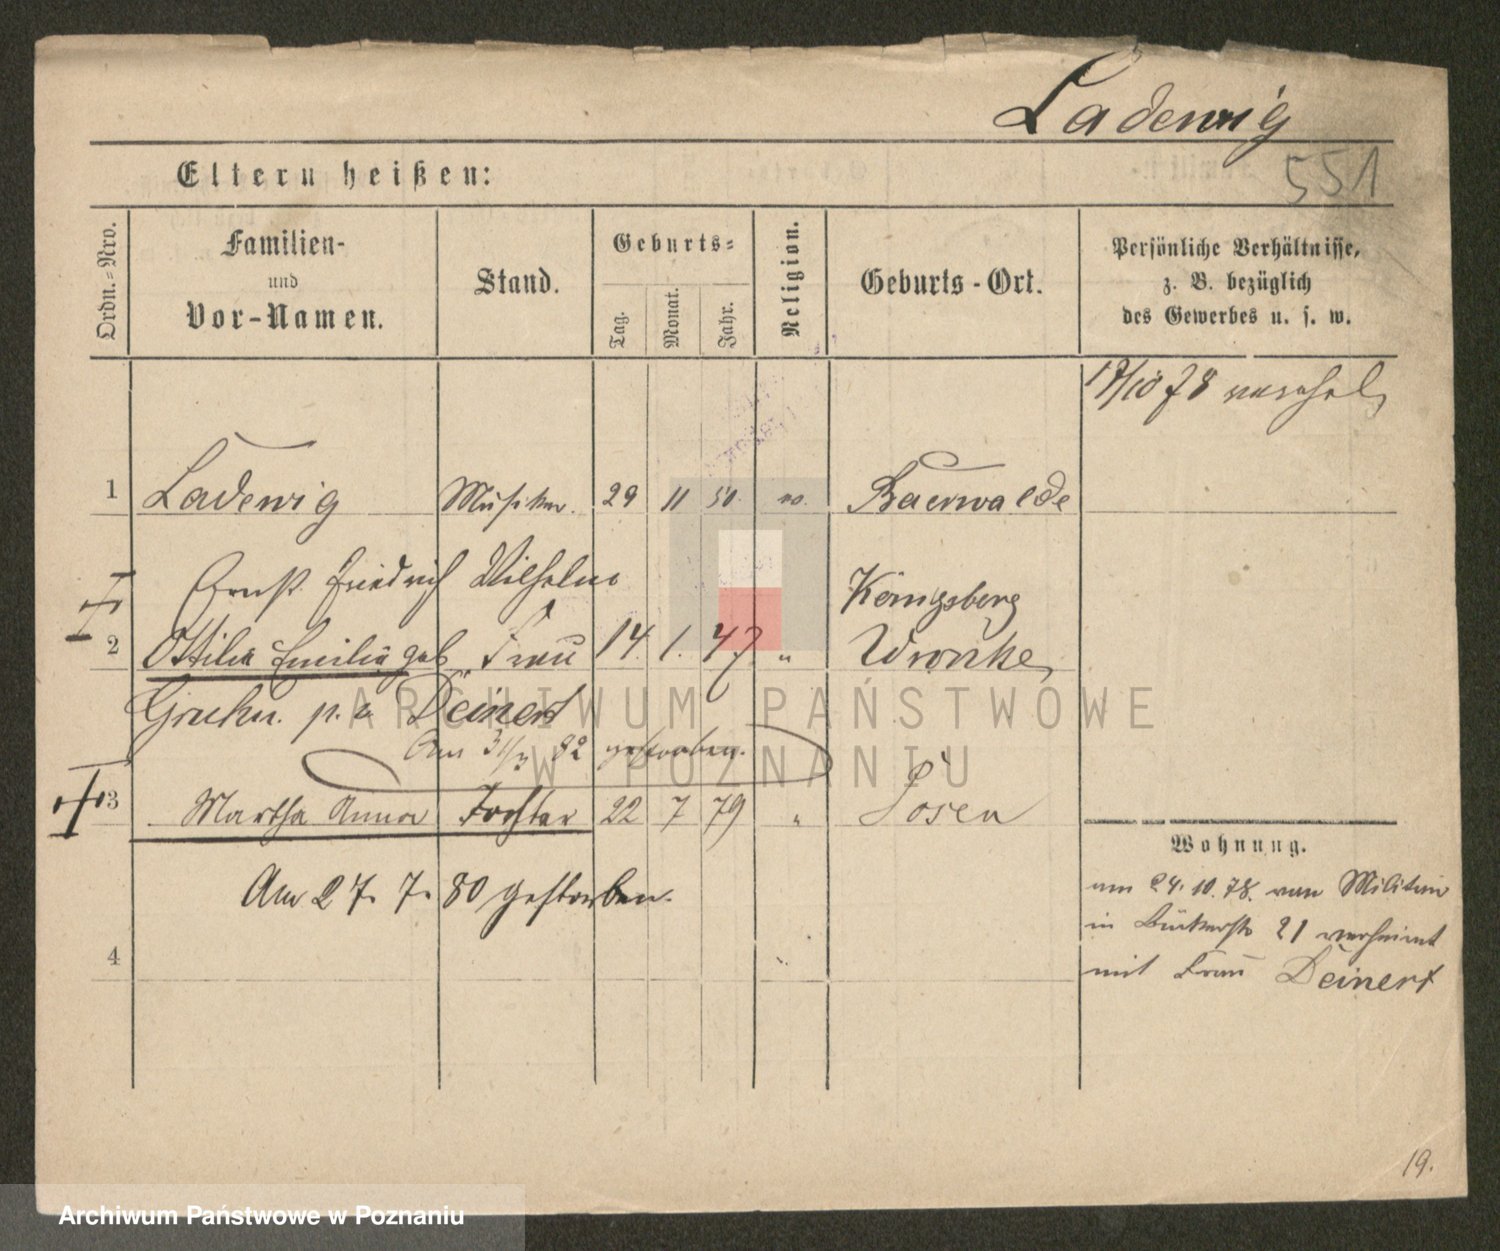 Ladewig
551
Eltern heißen:
Ordn.-Nro.
Familien-
und
Vor-Namen.
Stand.
Geburts-
Tag.
Monat.
Jahr.
Religion.
Geburts-Ort.
Persönliche Verhältnisse,
z. B. bezüglich
des Gewerbes u. s. w.
17/10 78
1 Ladewig Musiker. 29 11 50. ev. Baerwalde
Ernst Friedrich Wilhelm Königsberg
2 Ottilie Emilie geb. Frau 14. 1. 47. " Wronke
Deinert
Am 31/3 82 gestorben.
3 Martha Anna Tochter 22 7 79 " Posen
Am 27. 7. 80 gestorben.
4
Wohnung.
am 24. 10. 78. von
in 21
mit Frau Deinert
19.
ARCHIWUM PAŃSTWOWE
W POZNANIU
Archiwum Państwowe w Poznaniu